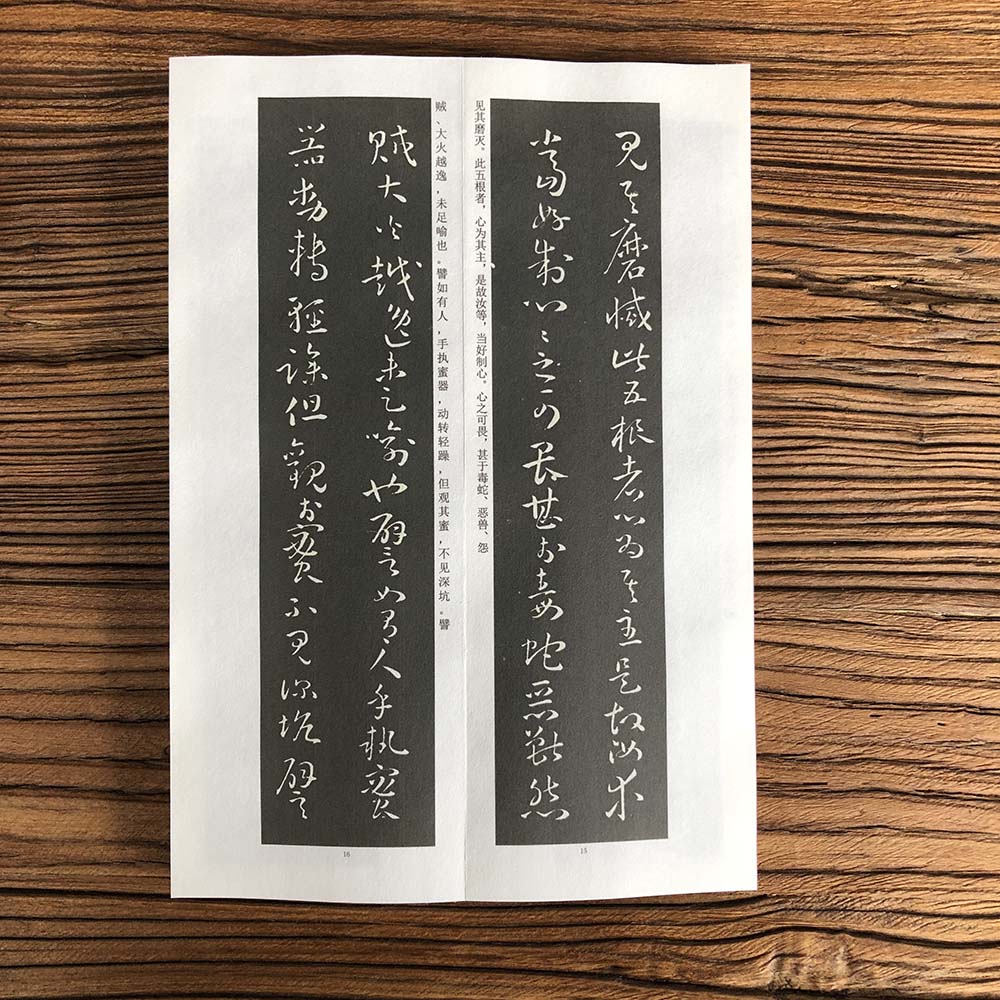 見其磨滅此五根者心為其主是故汝等
當好制心心之可畏甚於毒蛇惡獸怨
见其磨灭。此五根者，心为其主，是故汝等，当好制心。心之可畏，甚于毒蛇、恶兽、怨
15
贼、大火越逸，未足喻也。譬如有人，手执蜜器，动转轻躁，但观其蜜，不见深坑。譬
賊大火越逸未足喻也譬如有人手執蜜
器動轉輕躁但觀於蜜不見深坑譬
16